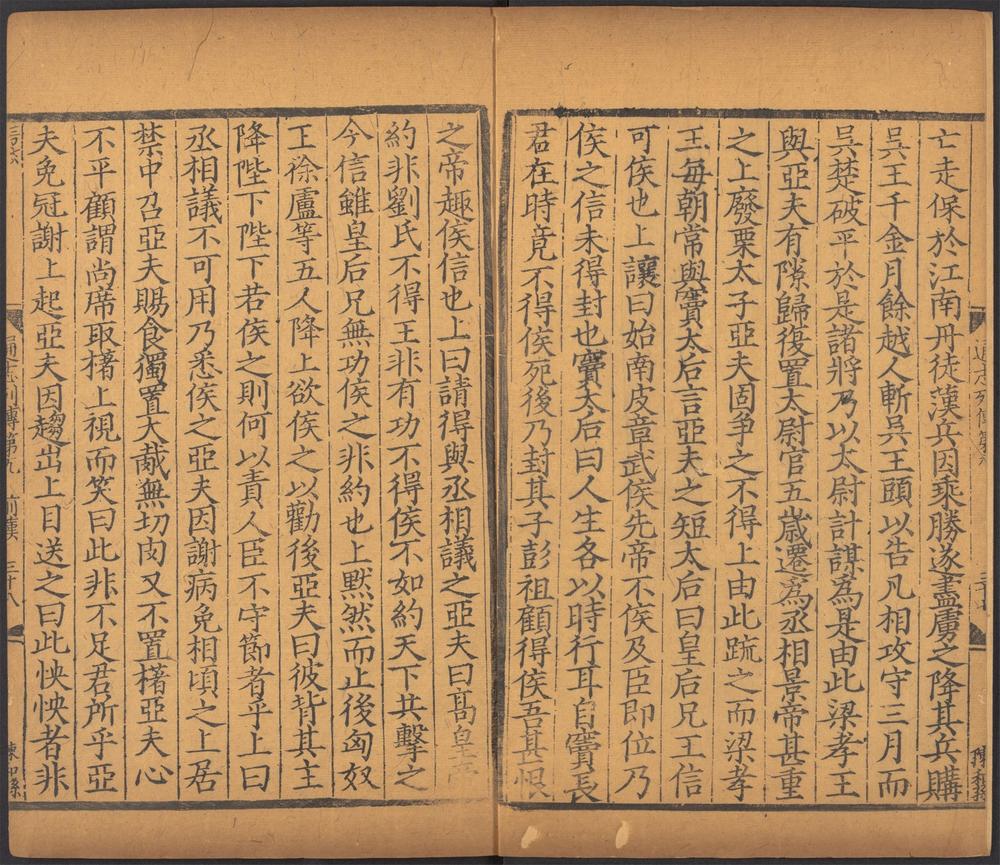 亡走保於江南丹徒漢兵因乘勝遂盡虜之降其兵購
吳王千金月餘越人斬吳王頭以告凡相攻守三月而
吳楚破平於是諸將乃以太尉計謀爲是由此梁孝王
與亞夫有隙歸復置太尉官五歲遷爲丞相景帝甚重
之上廢栗太子亞夫固爭之不得上由此疏之而梁孝
王每朝常與竇太后言亞夫之短太后曰皇后兄王信
可侯也上讓曰始南皮章武侯先帝不侯及臣即位乃
侯之信未得封也竇太后曰人生各以時行耳自竇長
君在時竟不得侯死後乃封其子彭祖顧得侯吾甚恨
之帝趣侯信也上曰請得與丞相議之亞夫曰高皇帝
約非劉氏不得王非有功不得侯不如約天下共擊之
今信雖皇后兄無功侯之非約也上黙然而止後匈奴
王徐盧等五人降上欲侯之以勸後亞夫曰彼背其主
降陛下陛下若侯之則何以責人臣不守節者乎上曰
丞相議不可用乃悉侯之亞夫因謝病免相頃之上居
禁中召亞夫賜食獨置大胾無切肉又不置櫡亞夫心
不平顧謂尚席取櫡上視而笑曰此非不足君所乎亞
夫免冠謝上起亞夫因趨出上目送之曰此怏怏者非
通志列傳第九 前漢 三十八